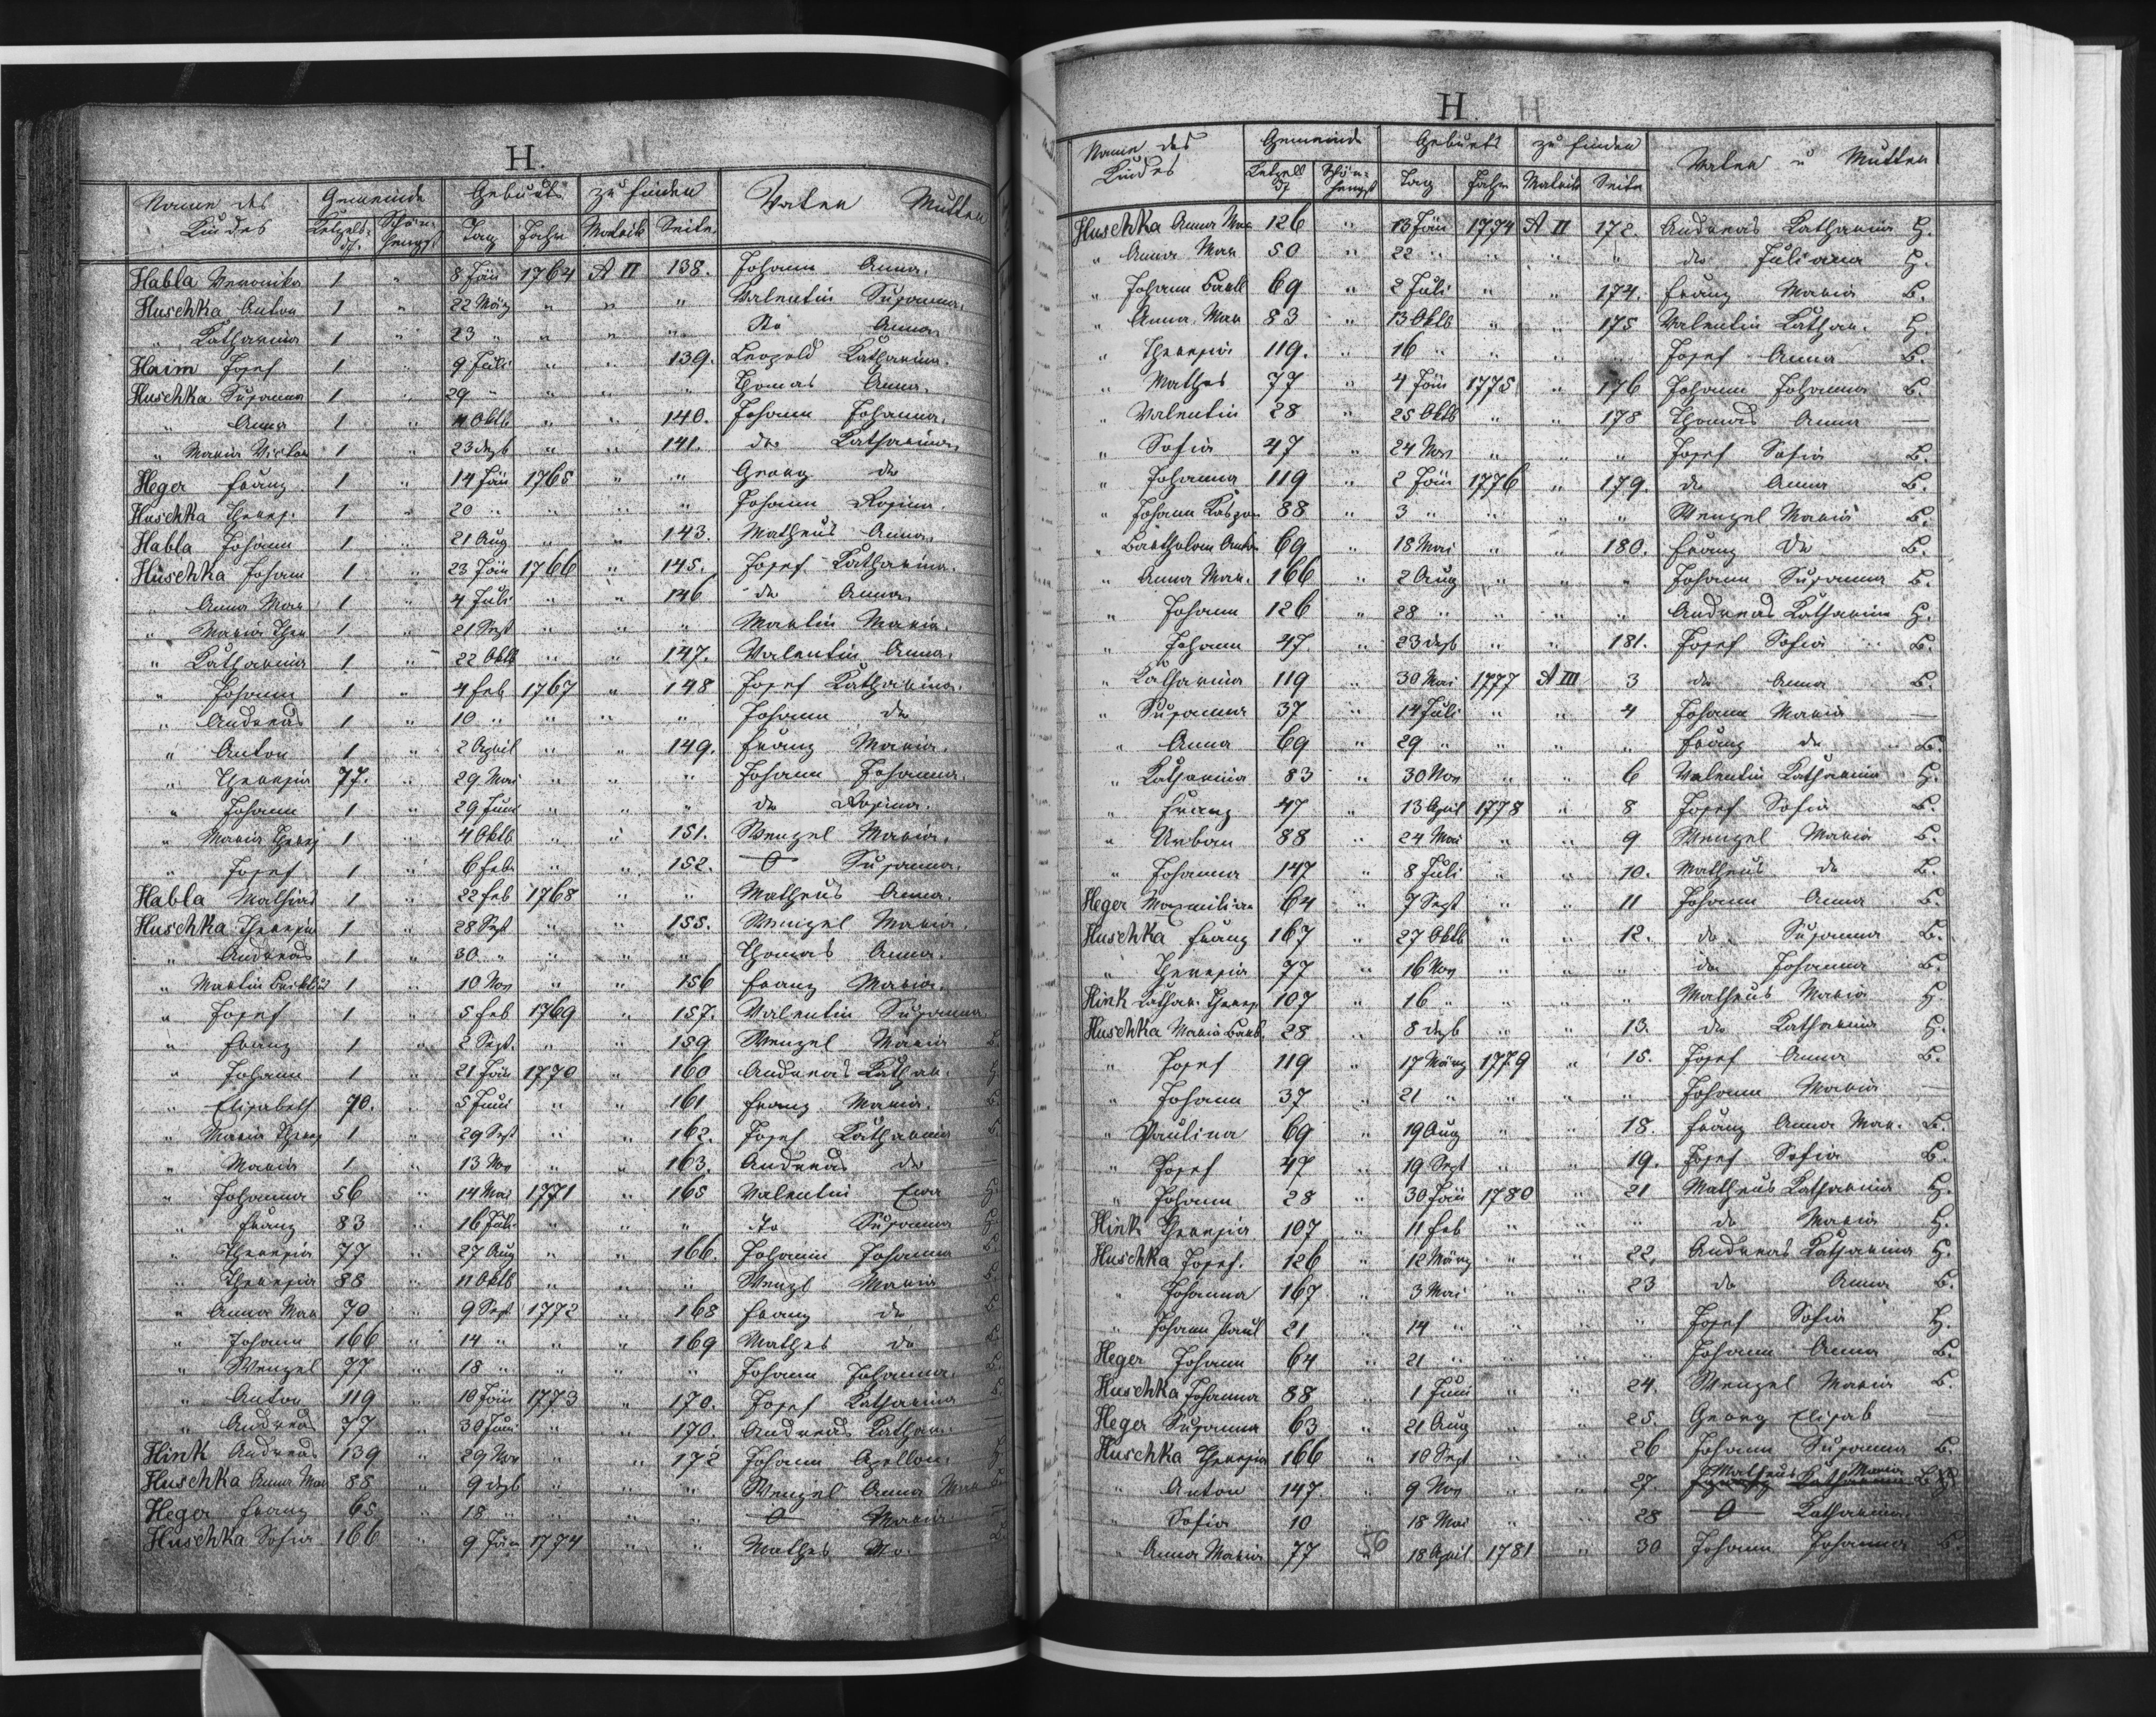 H.
Name des Kindes Gemeinde Geburts zu finden Vater Mutter
Ketzels-df. Schön-hengst Tag Jahr Matrik Seite
Habla Veronika 1 " 8 Jän 1764 A II 138. Johann Anna.
Huschka Anton 1 " 22 März " " " Valentin Susanna.
" Katharina 1 " 23 " " " " dto Anna
Haim Josef 1 " 9 Juli " " 139. Leopold Katharina.
Huschka Susanna 1 " 29 " " " " Thomas Anna.
" Anna 1 " Oktb " " 140. Johann Johanna.
" Maria Victor 1 " 23 dezb " " 141. do Katharina
Heger Franz 1 " 14 Jän 1765 " " Georg do
Huschka Theres. 1 " 20 " " " " Johann Rosina.
Habla Johann 1 " 21 Aug " " 143. Matheus Anna.
Huschka Johann 1 " 23 Jän 1766 " 145. Josef Katharina.
" Anna Mar 1 " 4 Juli " " 146 do Anna.
" Maria Ther 1 " 21 Sept " " " Martin Maria.
" Katharina 1 " 22 Oktb " " 147. Valentin Anna.
" Johann 1 " 4 Feb 1767 " 148 Josef Katharina.
" Andreas 1 " 10 " " " " Johann do
" Anton 1 " 2 April " " 149. Franz Maria.
" Theresia 77. " 29 Mai " " " Johann Johanna.
" Johann 1 " 29 Juni " " " do Rosina.
" Maria Theres 1 " 4 Oktb " " 151. Wenzel Maria.
" Josef 1 " 6 Feb " " 152. 0 Susanna.
Habla Mathias 1 " 22 Feb 1768 " " Matheus Anna.
Huschka Theresia 1 " 28 Sept " " 155. Wenzel Maria.
" Andreas 1 " 30 " " " " Thomas Anna.
" Martin 1 " 10 Nov " " 156 Franz Maria.
" Josef 1 " 5 Feb 1769 " 157. Valentin Susanna
" Franz 1 " 2 Sept. " " 159 Wenzel Maria B.
" Johann 1 " 21 Jän 1770 " 160 Andreas Kathar. H.
" Elisabeth 70. " 5 Juni " " 161 Franz Maria. B.
" Maria Theres 1 " 29 Sept " " 162. Josef Katharina B.
" Maria 1 " 13 Nov " " 163. Andreas do —
" Johanna 56 " 14 Mai 1771 " 165 Valentin Ewa H.
" Franz 83 " 16 Juli " " " dto Susanna H.
" Theresia 77 " 27 Aug " " 166. Johann Johanna B.
" Theresia 88 " 11 Oktb " " " Wenzl Maria B.
" Anna Mar 70 " 9 Sept 1772 " 168 Franz do B.
" Johann 166 " 14 " " " 169 Mathes do B.
" Wenzel 77 " 18 " " " " Johann Johanna. B.
" Anton 119 " 10 Jän 1773 " 170. Josef Katharina B.
" Andreas 77 " 30 Juni " " 170. Andreas Kathar. —
Hink Andreas 139 " 29 Nov " " 172 Johann Apollon. H
Huschka Anna Mar 88 " 9 dezb " " " Wenzel Anna Mar B.
Heger Franz 65 " 18 " " " " 0 Maria —
Huschka Sofia 166 " 9 Jän 1774 " " Mathes Ma. B.
H.
Name des Kindes Gemeinde Geburts zu finden Vater u Mutter
Ketzels df Schön-hengst Tag Jahr Matrik Seite
Huschka Anna Mar 126 " 13 Jän 1774 A II 172. Andreas Katharina H.
" Anna Mar 50 " 22 " " " " do Juliana H.
" Johann Barth 69 " 2 Juli " " 174. Franz Maria B.
" Anna Mar 83 " 13 Oktb " " 175 Valentin Kathar. H.
" Theresia 119. " 16 " " " " Josef Anna B.
" Mathes 77 " 4 Jän 1775 " 176 Johann Johanna B.
" Valentin 28 " 25 Oktb " " 178 Thomas Anna —
" Sofia 47 " 24 Nov " " " Josef Sofia B.
" Johanna 119 " 2 Jän 1776 " 179. do Anna B.
" Johann Kaspar 88 " 3 " " " " Wenzel Maria B.
" Bartholom Anton 69 " 18 Mai " " 180. Franz do B.
" Anna Mar. 166 " 2 Aug " " " Johann Susanna B.
" Johann 126 " 28 " " " " Andreas Katharina H.
" Johann 47 " 23 dezb " " 181. Josef Sofia B.
" Katharina 119 " 30 Mai 1777 A III 3 do Anna B.
" Susanna 37 " 14 Juli " " 4 Johann Maria —
" Anna 69 " 29 " " " " Franz do B.
" Katharina 83 " 30 Nov " " 6 Valentin Katharina H.
" Franz 47 " 13 April 1778 " 8 Josef Sofia B.
" Urban 88 " 24 Mai " " 9 Wenzel Maria B.
" Johanna 147 " 8 Juli " " 10. Matheus do B.
Heger Maximilian 64 " 7 Sept " " 11 Johann Anna B.
Huschka Franz 167 " 27 Oktb " " 12. do Susanna B.
" Theresia 77 " 16 Nov " " " do Johanna B.
Hink Kathar. Theres 107 " 16 " " " " Matheus Maria H.
Huschka Maria Barb. 28 " 8 dezb " " 13. do Katharina H.
" Josef 119 " 17 März 1779 " 15. Josef Anna B.
" Johann 37 " 21 " " " " Johann Maria —
" Paulina 69 " 19 Aug " " 18. Franz Anna Mar. B.
" Josef 47 " 19 Sept " " 19. Josef Sofia B.
" Johann 28 " 30 Jän 1780 " 21 Matheus Katharina H.
Hink Theresia 107 " 11 Feb " " " do Maria H.
Huschka Josef. 126 " 12 März " " 22, Andreas Katharina H.
" Johanna 167 " 3 Mai " " 23 do Anna B.
" Johann Paul 21 " 14 " " " " Josef Sofia H.
Heger Johann 64 " 21 " " " " Johann Anna B.
Huschka Johanna 88 " 1 Juni " " 24. Wenzel Maria B.
Heger Susanna 63 " 21 Aug " " 25. Georg Elisab —
Huschka Theresia 166 " 10 Sept " " 26 Johann Susanna B.
" Anton 147. " 9 Nov " " 27. Matheus Maria B
" Sofia 10 18 Mai " " 28 0 Katharina —
" Anna Maria 77 56 18 April 1781 " 30 Johann Johanna B.